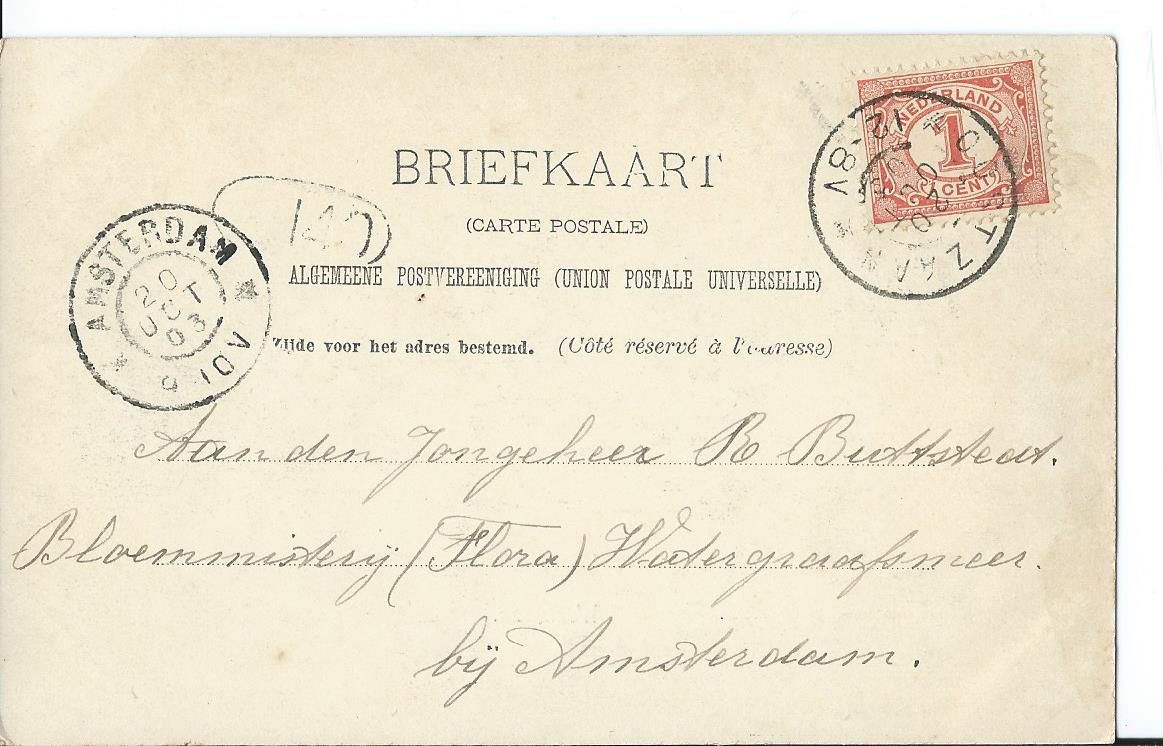 NEDERLAND
1
CENT
12-8V
BRIEFKAART
(CARTE POSTALE)
140
AMSTERDAM
20
OCT
03
ALGEMEENE POSTVEREENIGING (UNION POSTALE UNIVERSELLE)
Zijde voor het adres bestemd. (Côté réservé à l'adresse)
Aan den Jongeheer R Buttstedt.
Bloemmisterij (Flora) Watergraafsmeer.
bij Amsterdam.